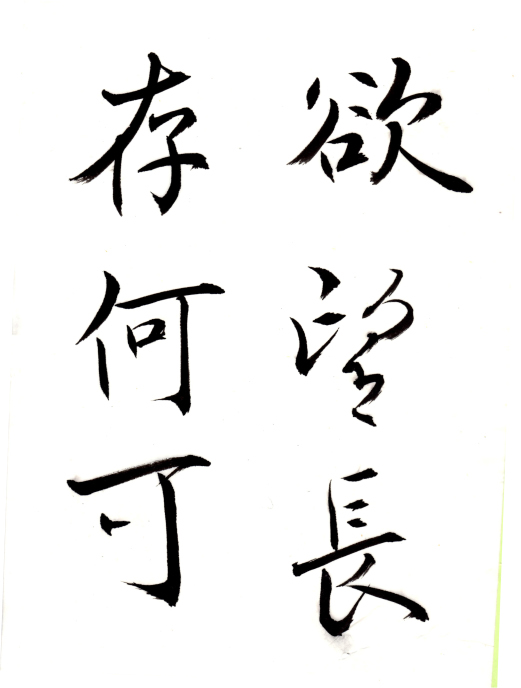 欲望長
存何可